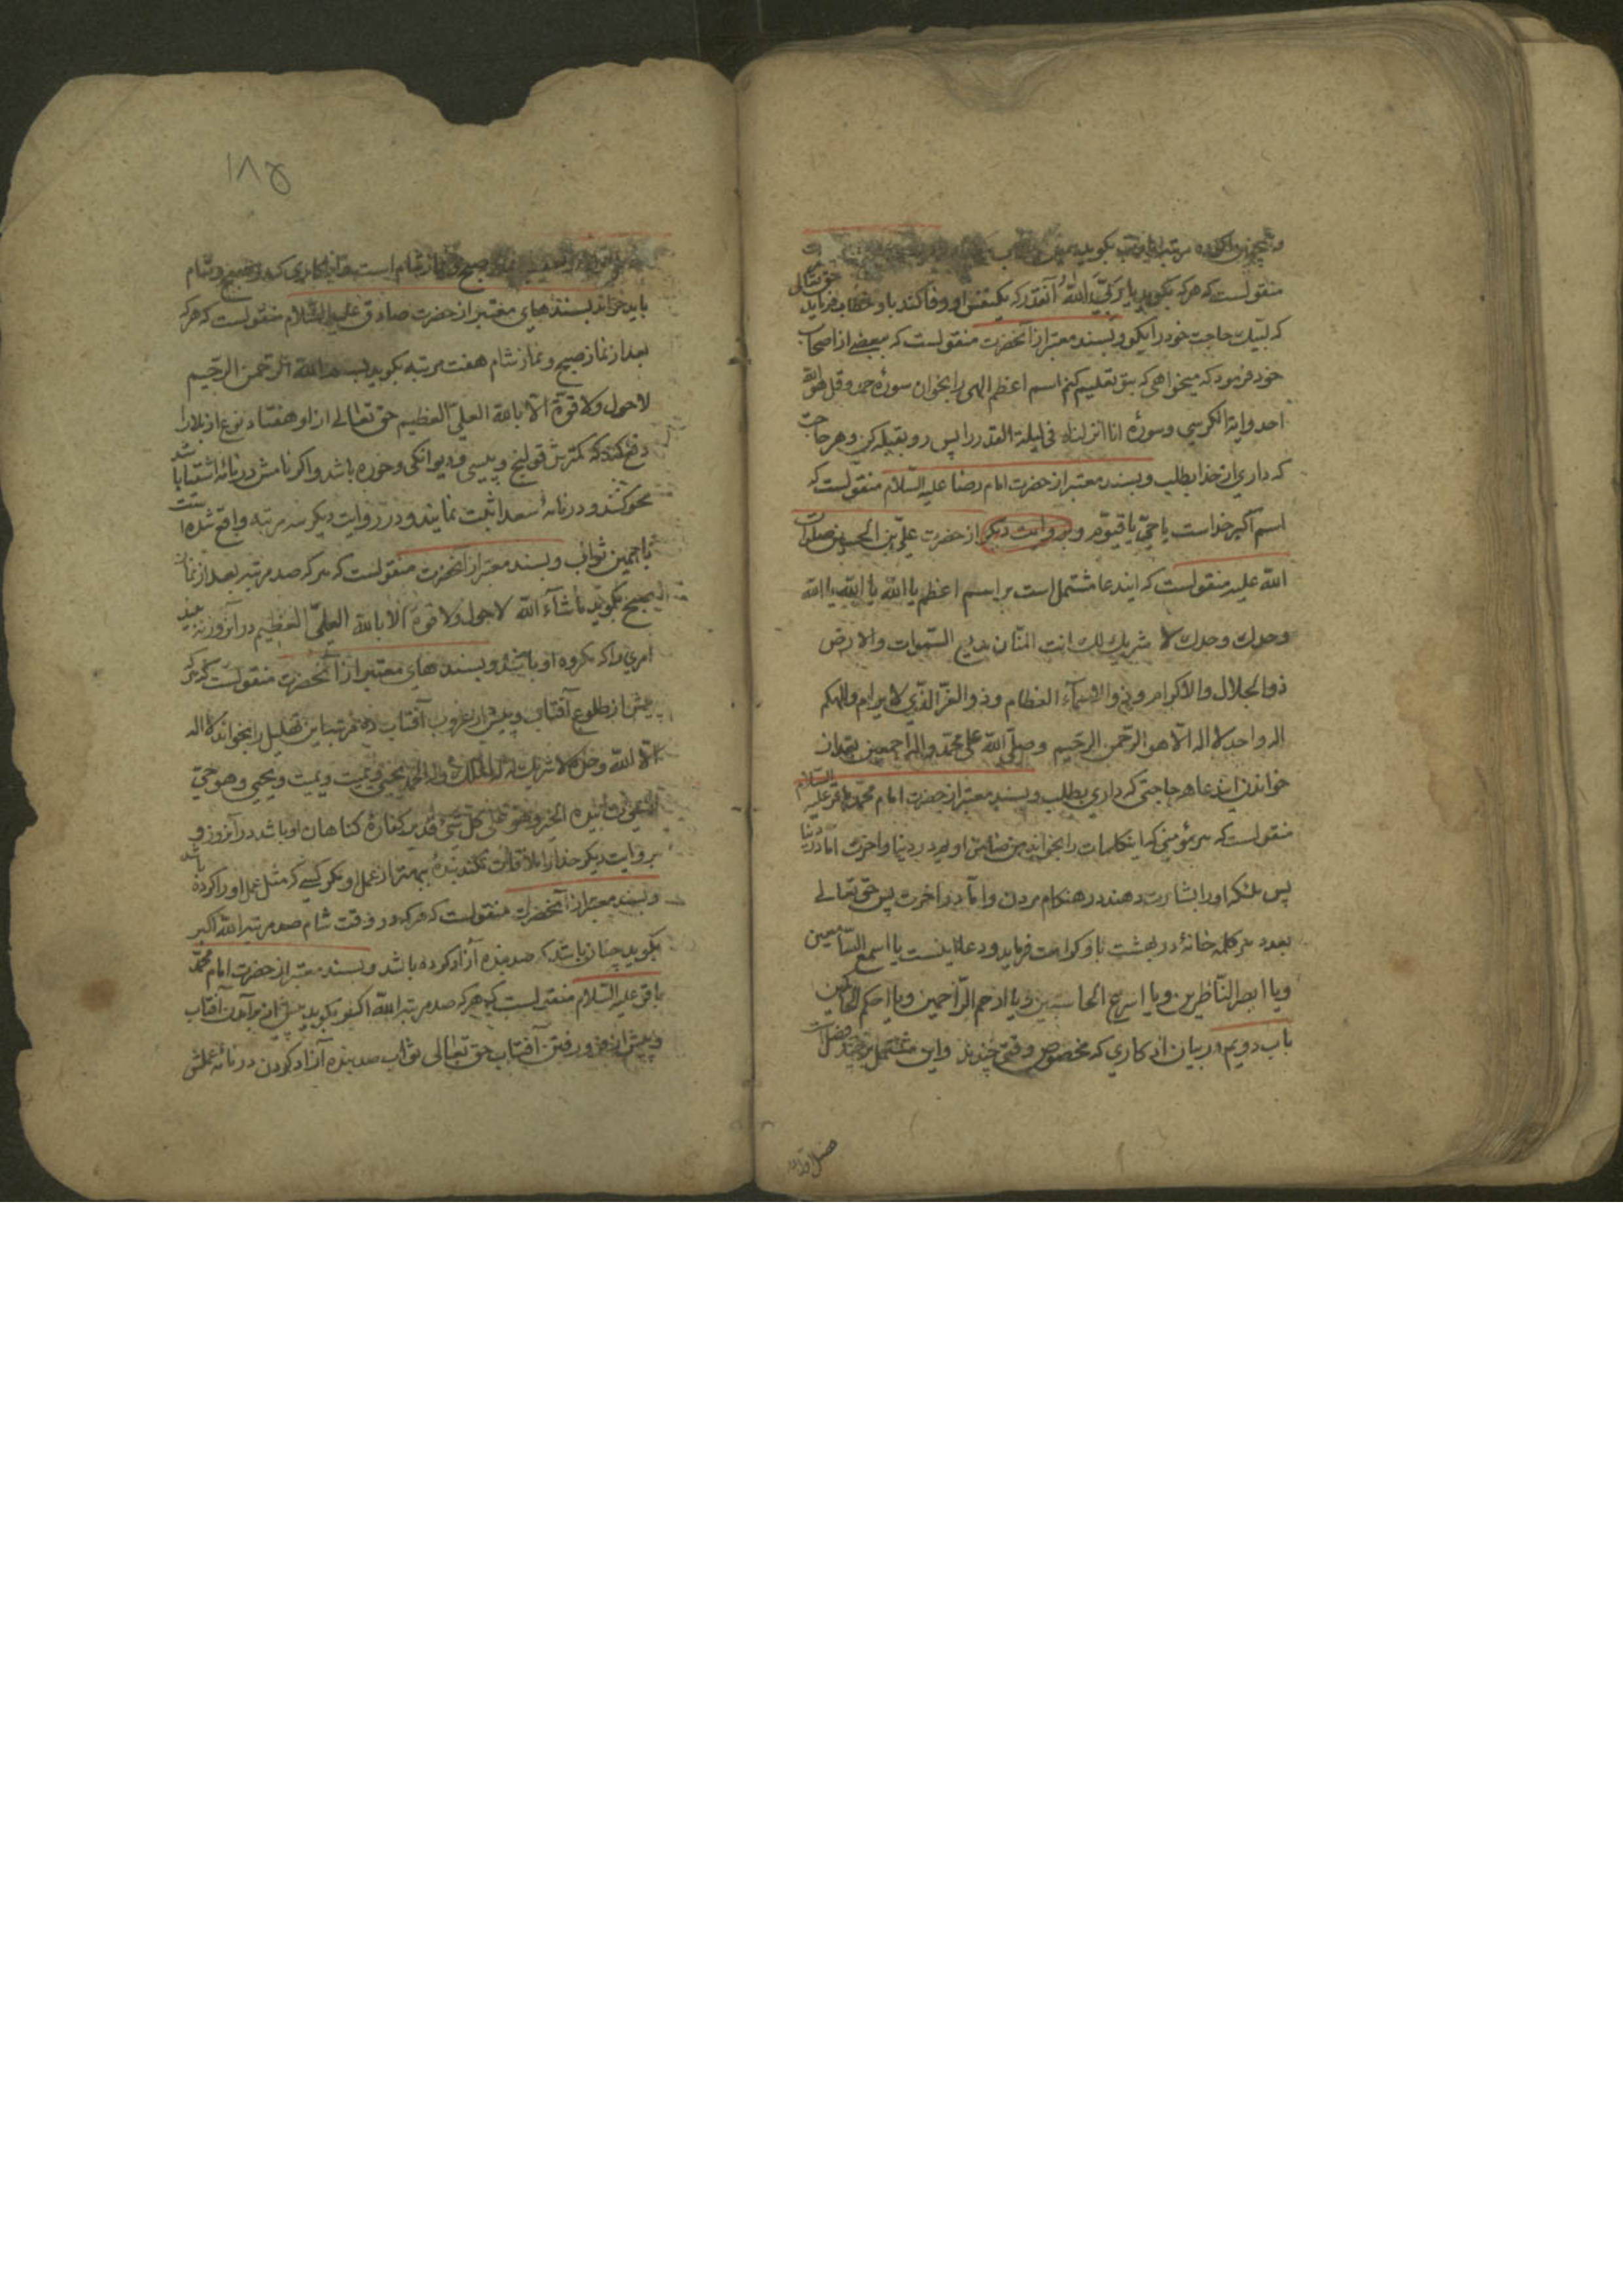 منقولست که هر که بکوید یا ربّی الله آنقدر که یکنفس او وفا کند باو خطاب فرماید حق تعالی
که لبیك حاجت خود را بکو و بسند معتبر از آنحضرت منقولست که ببعضی از اصحاب
خود فرمود که میخواهی که بتو تعلیم کنم اسم اعظم الهی را بخوان سورۀ حمد و قل هو الله
احد و ایة الکرسی و سورۀ انا انزلناه فی لیلة القدر را پس رو بقبله کن و هر حاجت
که داری از خدا بطلب و بسند معتبر از حضرت امام رضا علیه السّلام منقولست که
اسم اکبر خداست یا حیّ یا قیّوم و بروایت دیکر از حضرت علیّ بن الحسین صلوات
الله علیه منقولست که ایندعا مشتمل است بر اسم اعظم یا الله یا الله یا الله
وحدك وحدك لا شریك لك انت المنّان بدیع السّموات والارض
ذوالجلال والاکرام و ذوالاسمآء العظام وذوالعزّ الذّی لا یرام والهکم
اله واحد لا اله الّا هو الرّحمن الرحیم وصلّی الله علی محمّد واله اجمعین بعد از
خواندن ایندعا هر حاجتی که داری بطلب و بسند معتبر از حضرت امام محمّد باقر علیه السلام
منقولست که هر مؤمنی که اینکلمات را بخواند من ضامن اویم در دنیا و اخرت اما در دنیا
پس ملئکه او را بشارت دهند در هنکام مردن و امّا در اخرت پس حق تعالی
بعدد هر کلمه خانۀ در بهشت باو کرامت فرماید و دعا اینست یا اسمع السّامعین
ویا ابصر النّاظرین ویا اسرع الحاسبین ویا ارحم الرّاحمین ویا احکم الحاکمین
باب دویم در بیان اذکاری که مخصوص وقتی چندند و این مشتمل بر چند فصل است
فصل اول
۱۸۵
صبح و نماز شام است و اذکاری که در صبح و شام
باید خواند بسندهای معتبر از حضرت صادق علیه السّلام منقولست که هر که
بعد از نماز صبح و نماز شام هفت مرتبه بکوید بسم الله الرّحمن الرّحیم
لا حول ولا قوّة الّا بالله العلیّ العظیم حق تعالی از او هفتاد نوع از بلا را
دفع کند که کمترش قولنج و پیسی و دیوانکی و خوره باشد و اکر نامش در نامۀ اشقیا باشد
محو کنند و در نامۀ سعدا ثبت نمایند و در روایت دیکر سه مرتبه واقع شده است
با همین ثواب و بسند معتبر از آنحضرت منقولست که هر که صد مرتبه بعد از نماز
صبح بکوید ماشآء الله لا حول ولا قوّة الّا بالله العلیّ العظیم در آنروز نه بیند
امری را که مکروه او باشد و بسندهای معتبر از آنحضرت منقولست که هر که
پیش از طلوع آفتاب و پیش از غروب آفتاب ده مرتبه این تهلیل را بخواند لا اله
الّا الله وحده لا شریك له له الملك وله الحمد یحیی ویمیت ویمیت ویحیی وهو حیّ
لا یموت بیده الخیر وهو علی کل شیء قدیر کفارۀ کناهان او باشد در آنروز و
بروایت دیکر خدا را ملاقات نکند بندۀ بهتر از عمل او مکر کسی که مثل عمل او را کرده باشد
و بسند معتبر از آنحضرت منقولست که هر که در وقت شام صد مرتبه الله اکبر
بکوید چنان باشد که صد بنده آزاد کرده باشد و بسند معتبر از حضرت امام محمّد
باقر علیه السّلام منقولست که هر که صد مرتبه الله اکبر بکوید پیش از برآمدن آفتاب
و پیش از فرو رفتن آفتاب حق تعالی ثواب صد بنده آزاد کردن در نامۀ عملش